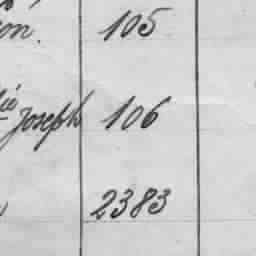 on. 105
Joseph 106
2383